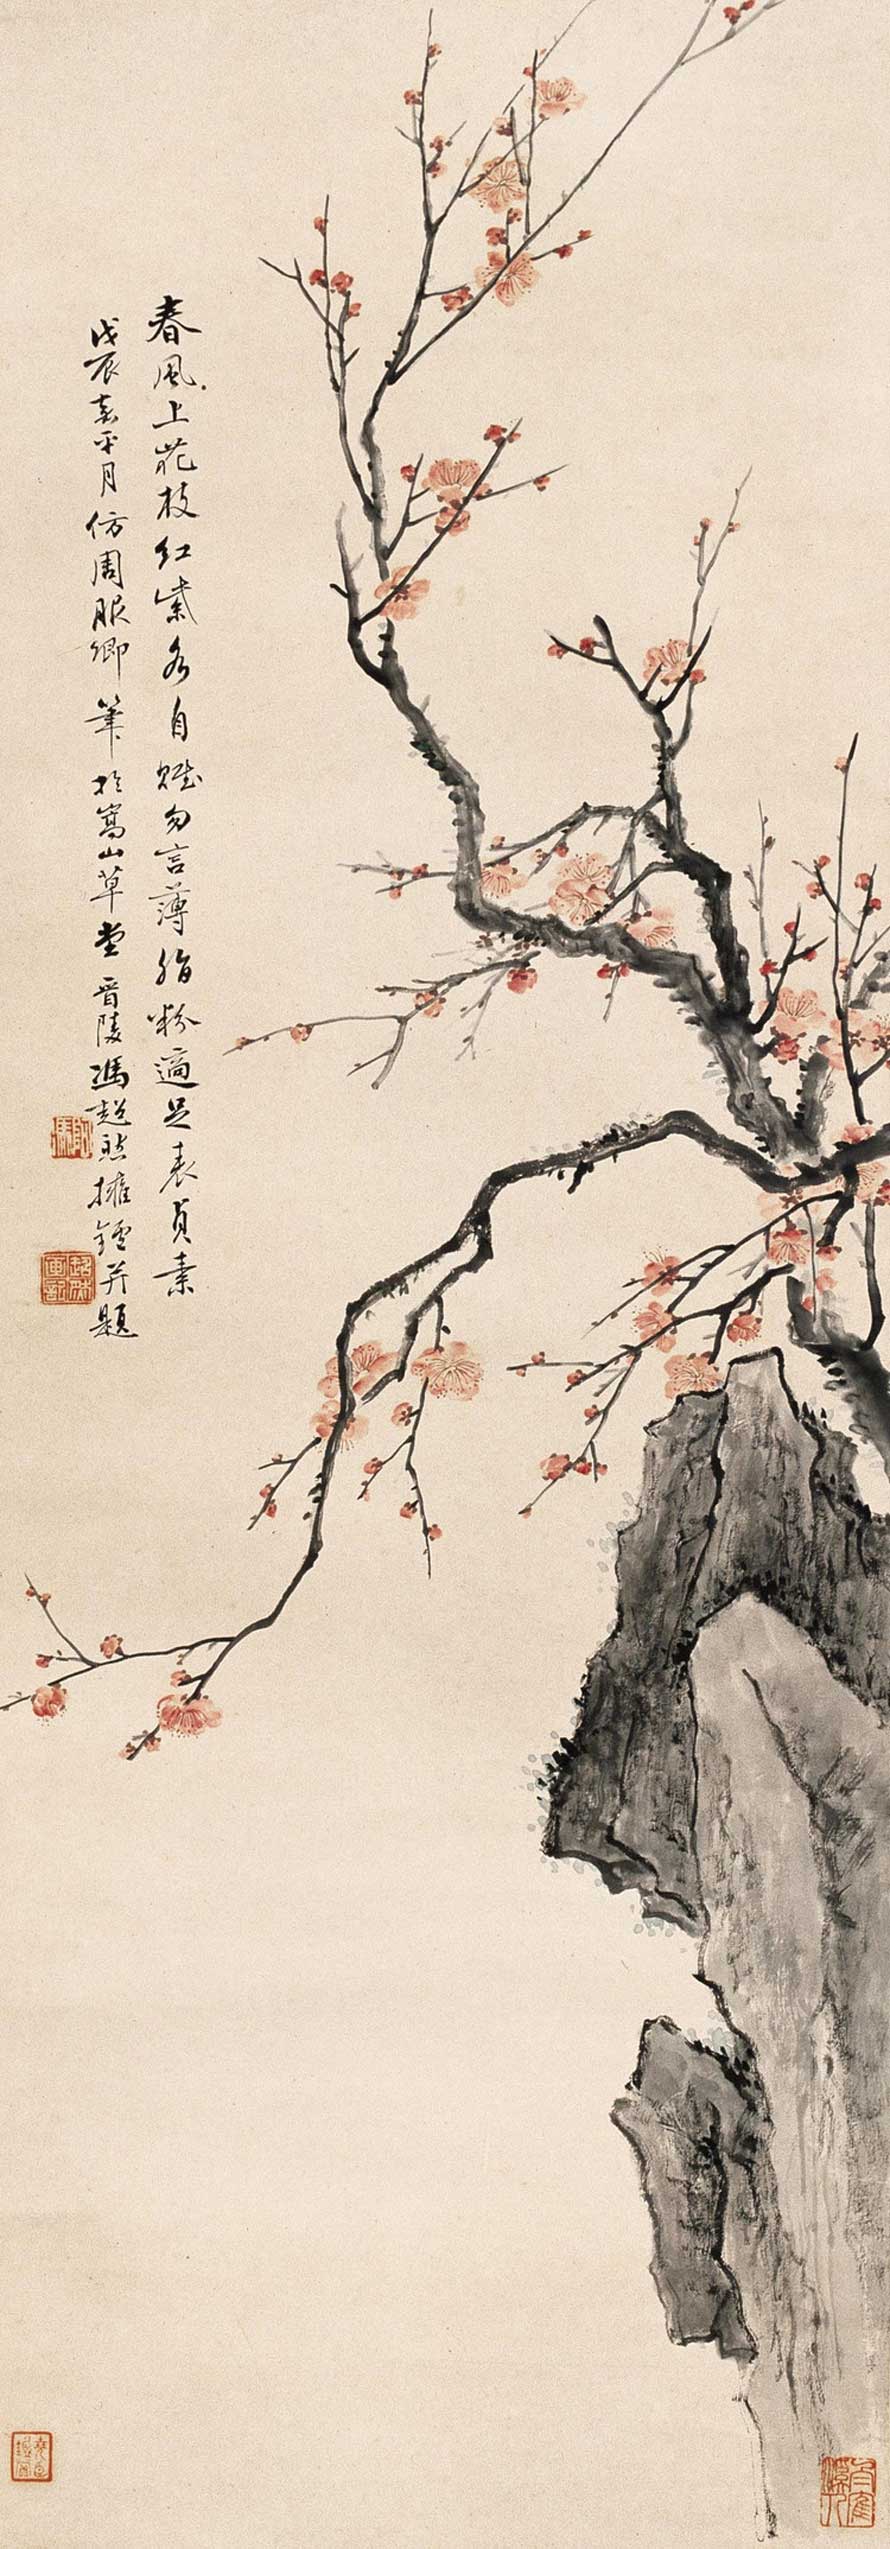 春風上花枝紅紫各自蹴勿言薄脂粉適足表貞素
戊辰嘉平月仿周服卿筆於嵩山草堂晋陵馮超然擁鑪并題